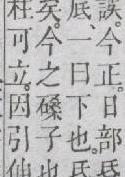 誤。今正。日部昏
底。一曰下也。氐
矣。今之磉子也
柱可立。因引伸